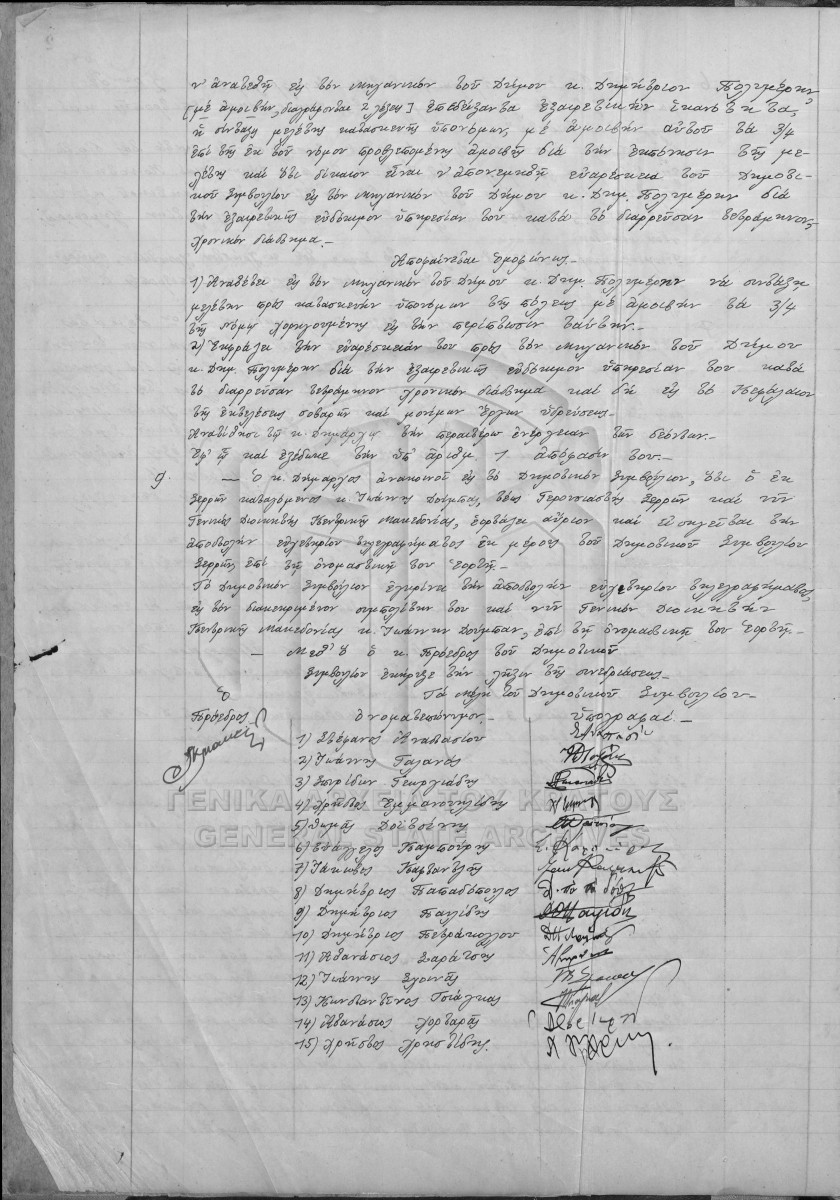 ν' ἀνατεθῇ εἰς τὸν μηχανικὸν τοῦ Δήμου κ. Δημήτριον Πολυμέρην
[μὲ ἀμοιβὴν, διαγράφονται 2 λέξεις] ἐπιδείξαντα ἐξαιρετικὴν ἱκανότητα,
ἡ σύνταξις μελέτης κατασκευῆς ὑπονόμων, μὲ ἀμοιβὴν αὐτοῦ τὰ 3/4
ἐπὶ τῆς ἐκ τοῦ νόμου προβλεπομένης ἀμοιβῆς διὰ τὴν ἐκπόνησιν τῆς με-
λέτης καὶ ὅτι δίκαιον εἶναι ν' ἀπονεμηθῇ εὐαρέσκεια τοῦ Δημοτι-
κοῦ Συμβουλίου εἰς τὸν μηχανικὸν τοῦ Δήμου κ. Δημ. Πολυμέρην διὰ
τὴν ἐξαιρετικῆς εὐδόκιμον ὑπηρεσίαν του κατὰ τὸ διαρρεῦσαν τετράμηνον
χρονικὸν διάστημα.-
Ἀποφαίνεται ὁμοφώνως.-
1) Ἀναθέτει εἰς τὸν μηχανικὸν τοῦ Δήμου κ. Δημ. Πολυμέρην νὰ συντάξῃ
μελέτην πρὸς κατασκευὴν ὑπονόμων τῆς πόλεως μὲ ἀμοιβὴν τὰ 3/4
τῆς νόμῳ χορηγουμένης εἰς τὴν περίπτωσιν ταύτην.-
2) Ἐκφράζει τὴν εὐαρέσκειάν του πρὸς τὸν μηχανικὸν τοῦ Δήμου
κ. Δημ. Πολυμέρην διὰ τὴν ἐξαιρετικῆς εὐδόκιμον ὑπηρεσίαν του κατὰ
τὸ διαρρεῦσαν τετράμηνον χρονικὸν διάστημα καὶ δὴ εἰς τὸ κεφάλαιον
τῆς ἐκτελέσεως σοβαρῶν καὶ μονίμων ἔργων ὑδρεύσεως.-
Ἀνατίθησι τῷ κ. Δημάρχῳ τὴν περαιτέρω ἐνέργειαν τῶν δεόντων.-
Ἐφ' ᾧ καὶ ἐξέδωκε τὴν ὑπ' ἀριθμ. 1 ἀπόφασίν του.-
9. — Ὁ κ. Δήμαρχος ἀνακοινοῖ εἰς τὸ Δημοτικὸν Συμβούλιον, ὅτι ὁ ἐκ
Σερρῶν καταγόμενος κ. Ἰωάννης Δούμπας, τέως Γερουσιαστὴς Σερρῶν καὶ νῦν
Γενικὸς Διοικητὴς Κεντρικῆς Μακεδονίας, ἑορτάζει αὔριον καὶ εἰσηγεῖται τὴν
ἀποστολὴν εὐχετηρίου τηλεγραφήματος ἐκ μέρους τοῦ Δημοτικοῦ Συμβουλίου
Σερρῶν, ἐπὶ τῇ ὀνομαστικῇ του ἑορτῇ.-
Τὸ Δημοτικὸν Συμβούλιον ἐγκρίνει τὴν ἀποστολὴν εὐχετηρίου τηλεγραφήματος,
εἰς τὸν διακεκριμένον συμπολίτην του καὶ νῦν Γενικὸν Διοικητὴν
Κεντρικῆς Μακεδονίας κ. Ἰωάννην Δούμπαν, ἐπὶ τῇ ὀνομαστικῇ του ἑορτῇ.-
— Μεθ' ὃ ὁ κ. Πρόεδρος τοῦ Δημοτικοῦ
Συμβουλίου ἐκήρυξε τὴν λῆξιν τῆς συνεδριάσεως.-
Ὁ Τὰ Μέλη τοῦ Δημοτικοῦ Συμβουλίου.-
Πρόεδρος Ὀνοματεπώνυμον.- Ὑπογραφαί.-
1) Στέφανος Ἀναστασίου
2) Ἰωάννης Γαλανός
3) Σπυρίδων Γεωργιάδης
4) Χρῆστος Ἐμμανουηλίδης
5) Θωμᾶς Δοϊτσίνης
6) Εὐάγγελος Καμπούρης
7) Ἰάκωβος
8) Δημήτριος Παπαδόπουλος
9) Δημήτριος Παυλίδης
10) Δημήτριος Πετρόπουλος
11) Ἀθανάσιος Σαράτσης
12) Ἰωάννης
13) Κωνσταντῖνος Τσιάγκας
14) Ἀθανάσιος Χορταρᾶς
15) Χρῆστος Χρηστίδης.
ΓΕΝΙΚΑ ΑΡΧΕΙΑ ΤΟΥ ΚΡΑΤΟΥΣ
GENERAL STATE ARCHIVES